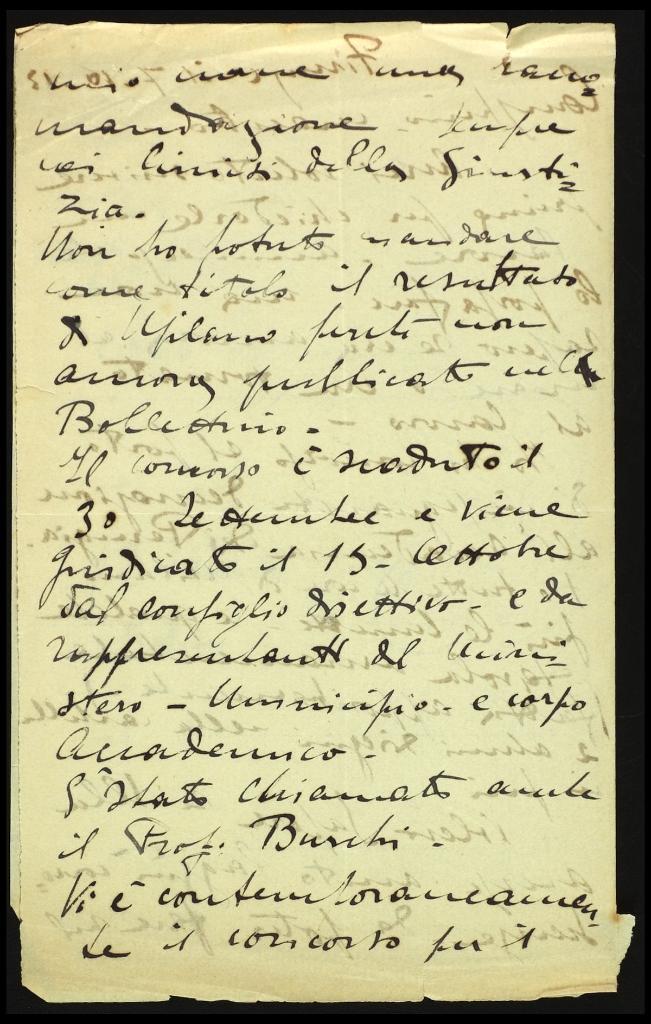 mio nome una racco=
mandazione sempre
nei limiti della Giusti=
zia.
Non ho potuto mandare
come titolo il resultato
di Milano perché non
ancora pubblicato nel
Bollettino -
Il concorso è scaduto il
30 Settembre e viene
giudicato il 15 - Ottobre
dal consiglio direttivo - e da
rappresentanti del Mini-
stero - Municipio - e corpo
Accademico -
È stato chiamato anche
il Prof. Buschi -
Vi è contemporaneamen-
te il concorso per il